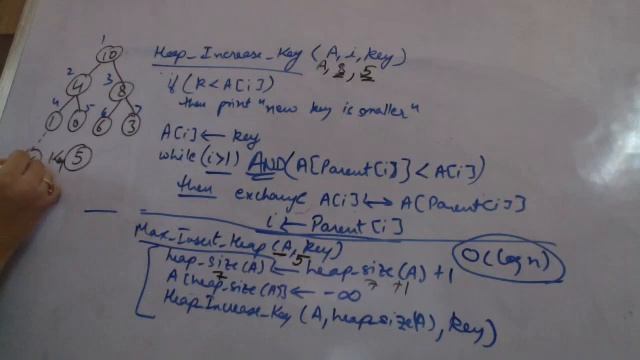 1
10
2 3
4 8
4 5 6 7
1 0 6 3
Key 5
Heap_Increase_Key (A, i, key)
A, 8, 5
if (k < A[i])
then print "new key is smaller"
A[i] ← key
while (i>1) AND (A[Parent[i]] < A[i])
then exchange A[i] ↔ A[Parent[i]]
i ← Parent[i]
Max_Insert_Heap (A, key)
5
heap_size(A) ← heap_size(A) + 1
7 7 +1
A[heap_size(A)] ← -∞
Heap_Increase_Key (A, heap size(A), key)
O(log n)